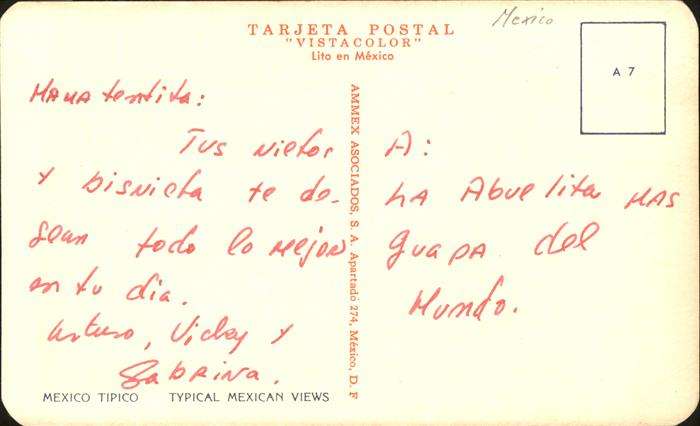 TARJETA POSTAL
"VISTACOLOR"
Lito en México
Mexico
A 7
Mama tentita:
Tus nietos
y bisnieta te de-
sean todo lo mejor
en tu dia.
Arturo, Vicky y
Sabrina.
AMMEX ASOCIADOS, S. A. Apartado 274, México, D. F
A:
LA Abuelita MAS
guapa del
Mundo.
MEXICO TIPICO TYPICAL MEXICAN VIEWS